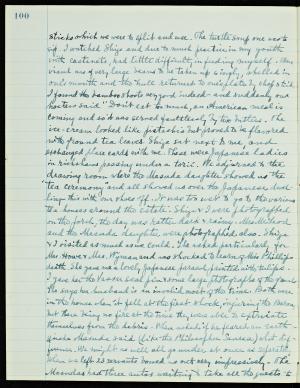 100
sticks which we were to split and use. The turtle soup one was to
sip. I watched Shige and due to much practice in my youth
with castanets, had little difficulty in feeding myself. An
viand was of very large beans to be taken up singly, shelled in
one's mouth and the hull returned to one's plate by chopsticks.
I found the bamboo shoots very good indeed and suddenly our
hostess said "Don't eat too much, an American meal is
coming" and it was served faultlessly by the butlers. The
ice-cream looked like pistachio but proved to be flavored
with ground tea leaves. Shige sat next to me and
exchanged place cards with me. These were Japanese ladies
in rickshaws passing under a torii. We adjourned to the
drawing room where the Masuda daughter showed us the
tea ceremony and all showed us over the Japanese
this with our shoes off. It was too wet to go to the various
tea houses around the estate. Shige & I were photographed
on the porch, the day was rather dark & rainy. Mrs.
and the Masuda daughter were photographed also. Shige
& I visited as much as we could. She asked particularly for
Mrs. Howe & Mrs. Wyman and was shocked to learn of Miss Phillips'
death. She gave me a lovely Japanese parasol painted with tulips.
I gave her the Vassar seal pin & some large photographs of the
She says her husband is an invalid most of the time. Both were
in the house when it fell at the first shock, injuring the Baron
but there being no fire at the time they were able to extricate
themselves from the debris. When asked if he feared an earth-
quake Masuda said (like the Philosopher Seneca) what if
comes. We might as well all go under, at once as separate.
When we left 23 servants bowed us out very impressively. The
Masudas had three autos waiting & take all the guests to